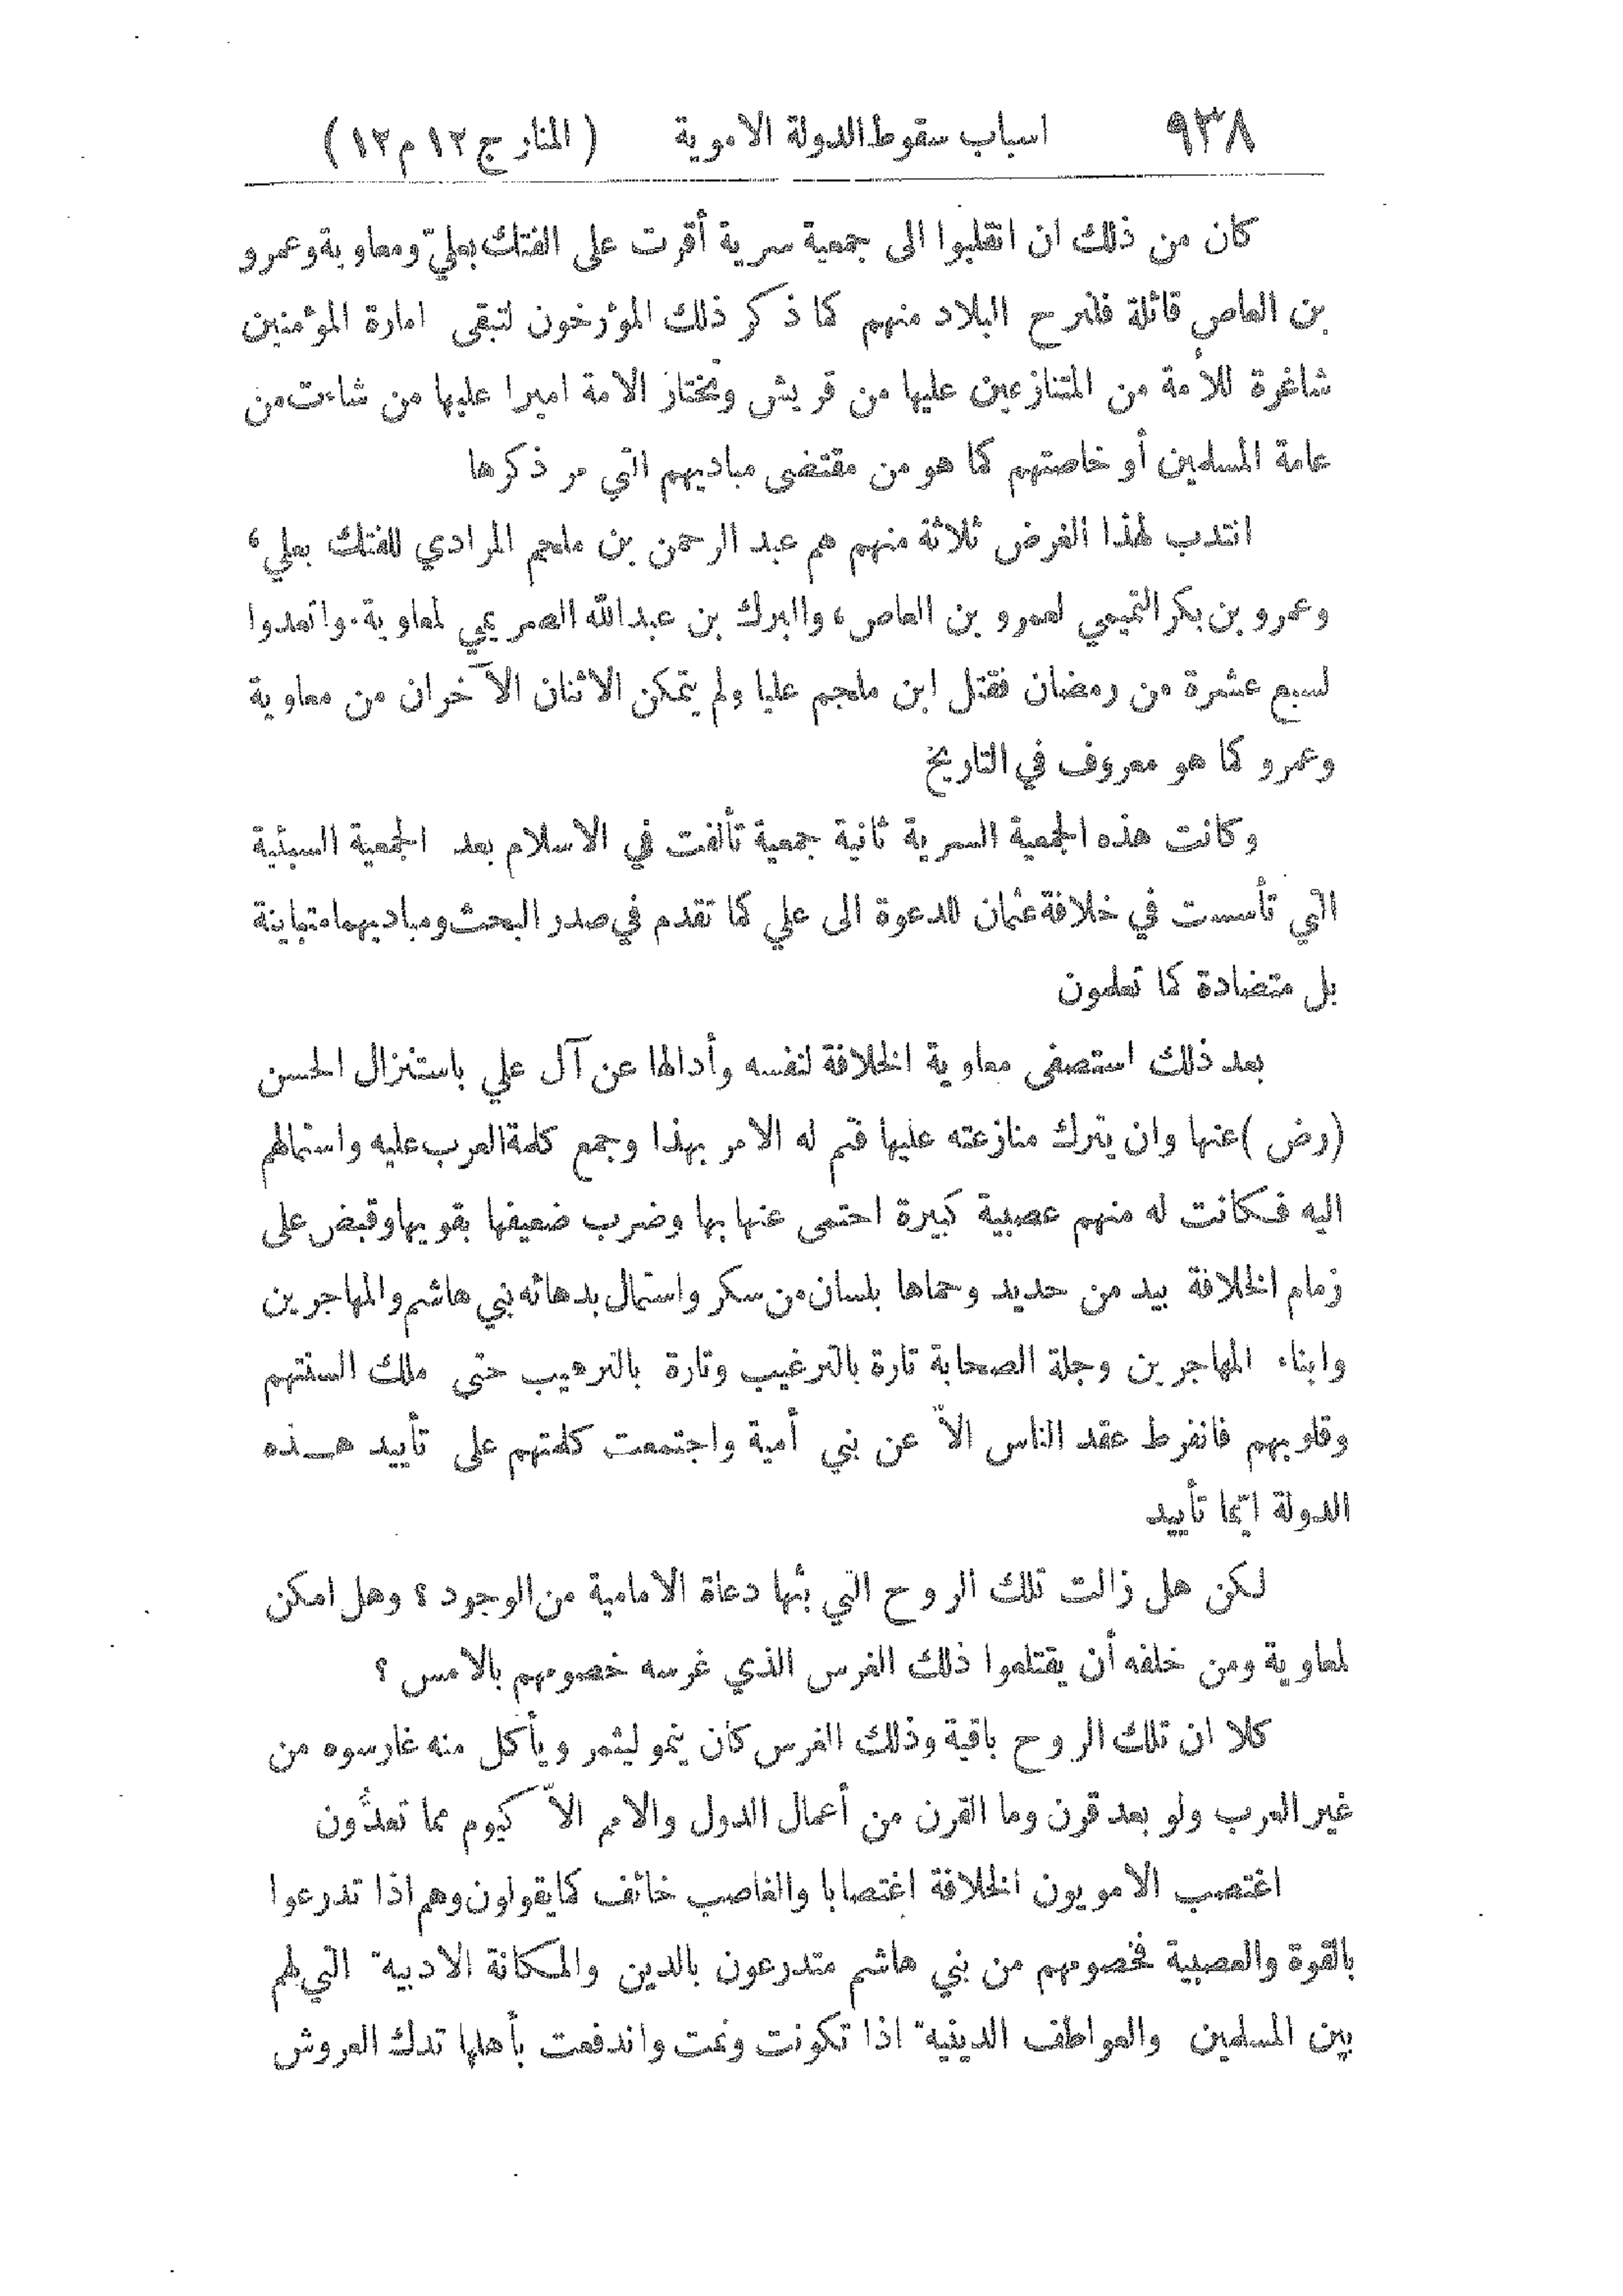 ٩٣٨ اسباب سقوط الدولة الاموية ( المنار ج ١٢ م ١٢ )
كان من ذلك ان انقلبوا الى جمعية سرية أقرت على الفتك بعليّ ومعاوية وعمرو
بن العاص قائلة فلنرح البلاد منهم كما ذكر ذلك المؤرخون لتبقى امارة المؤمنين
شاغرة للأمة من المتنازعين عليها من قريش وتختار الامة اميرا عليها من شاءت من
عامة المسلمين أو خاصتهم كما هو من مقتضى مباديهم التي مر ذكرها
انتدب لهذا الغرض ثلاثة منهم هم عبد الرحمن بن ملجم المرادي للفتك بعلي ،
وعمرو بن بكر التميمي لعمرو بن العاص ، والبرك بن عبدالله الصريمي لمعاوية . واتعدوا
لسبع عشرة من رمضان فقتل ابن ملجم عليا ولم يتمكن الاثنان الآخران من معاوية
وعمرو كما هو معروف في التاريخ
وكانت هذه الجمعية السرية ثانية جمعية تألفت في الاسلام بعد الجمعية السبئية
التي تأسست في خلافة عثمان للدعوة الى علي كما تقدم في صدر البحث ومباديهما متباينة
بل متضادة كما تعلمون
بعد ذلك استصفى معاوية الخلافة لنفسه وأدالها عن آل علي باستنزال الحسن
(رض ) عنها وان يترك منازعته عليها فتم له الامر بهذا وجمع كلمة العرب عليه واستمالهم
اليه فكانت له منهم عصبية كبيرة احتمى عنها بها وضرب ضعيفها بقويها وقبض على
زمام الخلافة بيد من حديد وحماها بلسان من سكر واستمال بدهائه بني هاشم والمهاجرين
وابناء المهاجرين وجلة الصحابة تارة بالترغيب وتارة بالترهيب حتى ملك السنتهم
وقلوبهم فانفرط عقد الناس الاّ عن بني أمية واجتمعت كلمتهم على تأييد هـذه
الدولة ايما تأييد
لكن هل زالت تلك الروح التي بثها دعاة الامامية من الوجود ؟ وهل امكن
لمعاوية ومن خلفه أن يقتلعوا ذلك الغرس الذي غرسه خصومهم بالامس ؟
كلا ان تلك الروح باقية وذلك الغرس كان ينمو ليثمر ويأكل منه غارسوه من
غير العرب ولو بعد قرون وما القرن من أعمال الدول والامم الاّ كيوم مما تعدُّون
اغتصب الامويون الخلافة اغتصابا والغاصب خائف كما يقولون وهم اذا تدرعوا
بالقوة والعصبية فخصومهم من بني هاشم متدرعون بالدين والمكانة الادبية التي لهم
بين المسلمين والعواطف الدينية اذا تكونت ونمت واندفعت بأهلها تدك العروش